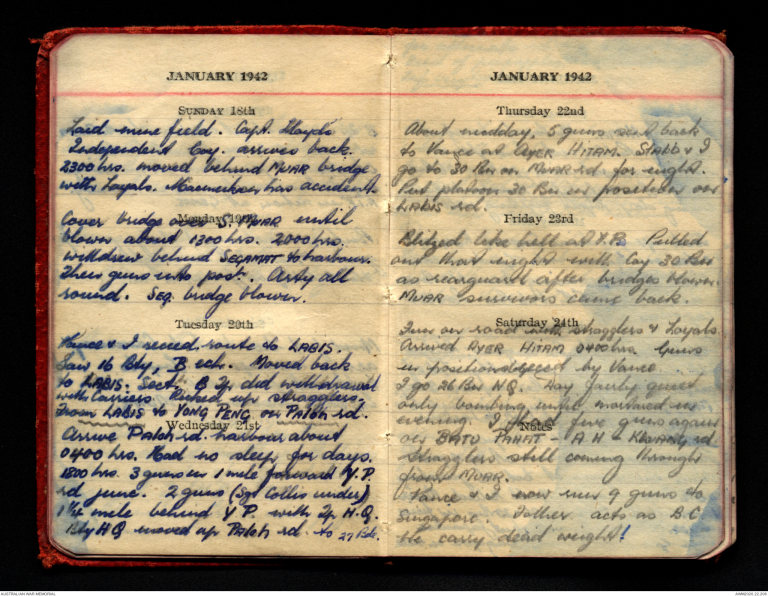 JANUARY 1942
SUNDAY 18th
Laid mine field. Capt. Lloyds
Independent Coy. arrives back.
2300 hrs. moved behind MUAR bridge
with Loyals. has accident.
Monday 19th
Cover bridge over S. MUAR until
blown about 1300 hrs. 2000 hrs.
withdrew behind SEGAMAT to harbour.
Then guns into posn. Arty all
round. SEG. bridge blown.
Tuesday 20th
Vance & I recced route to LABIS.
Saw 16 Bty, B ech. Moved back
to LABIS. Sect, B Tp did withdrawal
with Carriers. Picked up stragglers.
From LABIS to YONG PENG on PALOH rd.
Wednesday 21st
Arrive PALOH rd. harbour about
0400 hrs. Had no sleep for days.
1800 hrs. 3 guns in 1 mile forward Y.P.
rd junc. 2 guns (Sgt Collis under)
1½ mile behind Y P. with Tp H.Q.
Bty HQ moved up PALOH rd. to 27 Bde.
JANUARY 1942
Thursday 22nd
About midday, 5 guns sent back
to Vance at AYER HITAM. Stabb & I
go to 30 Bn on MUAR rd. for night.
Put platoon 30 Bn in position on
LABIS rd.
Friday 23rd
Blitzed like hell at Y.P. Pulled
out that night with Coy 30 Bn
as rearguard after bridges blown.
MUAR survivors come back.
Saturday 24th
Jam on road with stragglers & Loyals.
Arrived AYER HITAM 0400 hrs. Guns
in position by Vance
I go 26 Bn HQ. Day fairly quiet
only bombing until mortared in
evening. I five guns again
Notes
on BATU PAHAT - A H - rd
Stragglers still coming through
from MUAR.
Vance & I now run 9 guns to
Singapore. acts as B.C.
We carry dead weight!
AUSTRALIAN WAR MEMORIAL